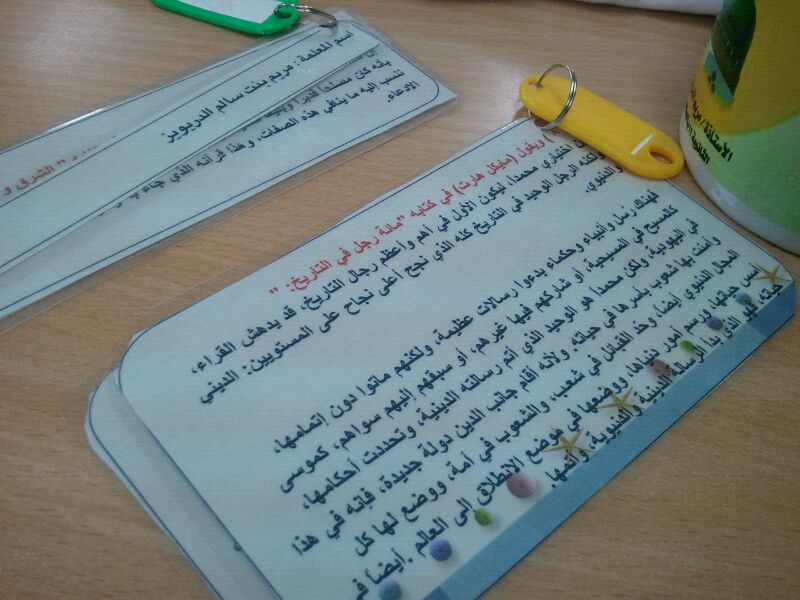 اسم المعلمة : مريم بنت سالم الدريويز
بأنه كان مصلحاً قديراً
تنسب إليه ما ينافي هذه الصفات، وهذا قرآنه الذي جاء
الادعاء.
" الشرق و
) ويقول (مايكل هارت) في كتابه "مائة رجل في التاريخ: "
اختياري محمدا، ليكون الأول في أهم وأعظم رجال التاريخ، قد يدهش القراء،
ولكنه الرجل الوحيد في التاريخ كله الذي نجح أعلى نجاح على المستويين: الديني
والدنيوي.
فهناك رسل وأنبياء وحكماء بدءوا رسالات عظيمة، ولكنهم ماتوا دون إتمامها،
كالمسيح في المسيحية، أو شاركهم فيها غيرهم، أو سبقهم إليهم سواهم، كموسى
في اليهودية، ولكن محمدا هو الوحيد الذي أتم رسالته الدينية، وتحددت أحكامها،
وآمنت بها شعوب بأسرها في حياته. ولأنه أقام جانب الدين دولة جديدة، فإنه في هذا
المجال الدنيوي أيضا، وحد القبائل في شعب، والشعوب في أمة، ووضع لها كل
أسس حياتها، ورسم أمور دنياها، ووضعها في موضع الانطلاق إلى العالم .أيضاً في
حياته، فهو الذي بدأ الرسالة الدينية والدنيوية، وأتمها
الأستاذة/ مر